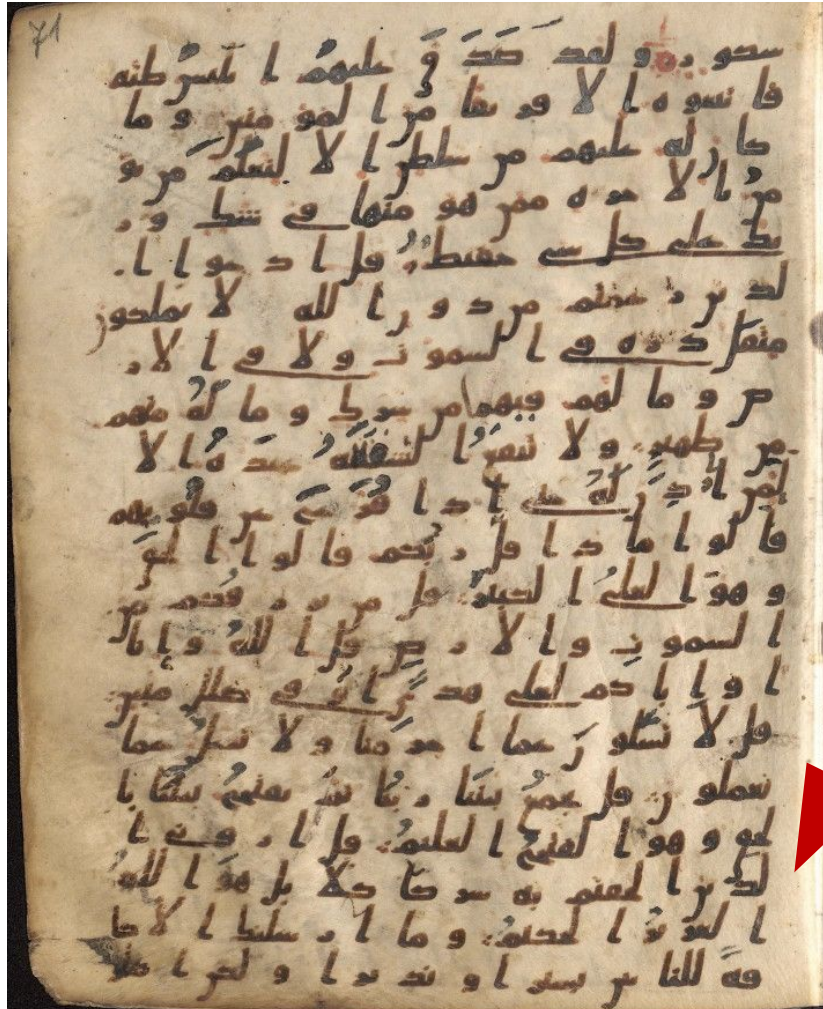 شكور ولقد صدق عليهم ابليس ظنه
فاتبعوه الا فريقا من المومنين وما
كان له عليهم من سلطن الا لنعلم من يو
من بالاخره ممن هو منها في شك ور
بك على كل شي حفيظ قل ادعوا ا
لذين زعمتم من دون الله لا يملكون
مثقل ذره في السموت ولا في الار
ض وما لهم فيهما من شرك وما له منهم
من ظهير ولا تنفع الشفعه عنده الا
لمن اذن له حتى اذا فزع عن قلوبهم
قالوا ماذا قل ربكم قالوا الحق
وهو العلي الكبير قل من يرزقكم من
السموت والارض قل الله وانا
او اياكم لعلى هدى او في ضلل مبين
قل لا تسلون عما اجرمنا ولا نسل عما
تعملون قل يجمع بيننا ربنا ثم يفتح بيننا با
لحق وهو الفتح العليم قل اروني ا
لذين الحقتم به شركا كلا بل هو الله
العزيز الحكيم وما ارسلنك الا كا
فه للناس بشيرا ونذيرا ولكن اكثر
71